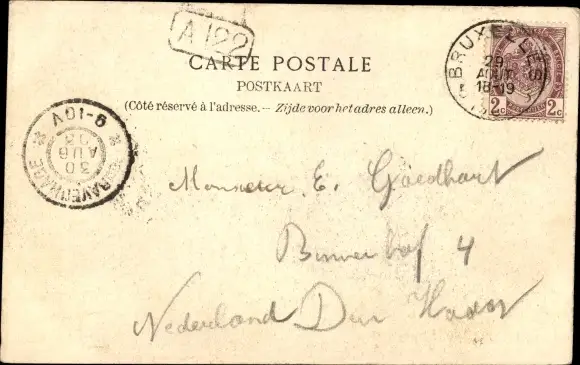 A 122
CARTE POSTALE
POSTKAART
(Côté réservé à l'adresse. — Zijde voor het adres alleen.)
BRUXELLES
29
AOUT
18-19
2c 2c
'S GRAVENHAGE
30
AUG
03
9-10V
Monsieur E. Goedhart
Binnenhof 4
Nederland Den Haag